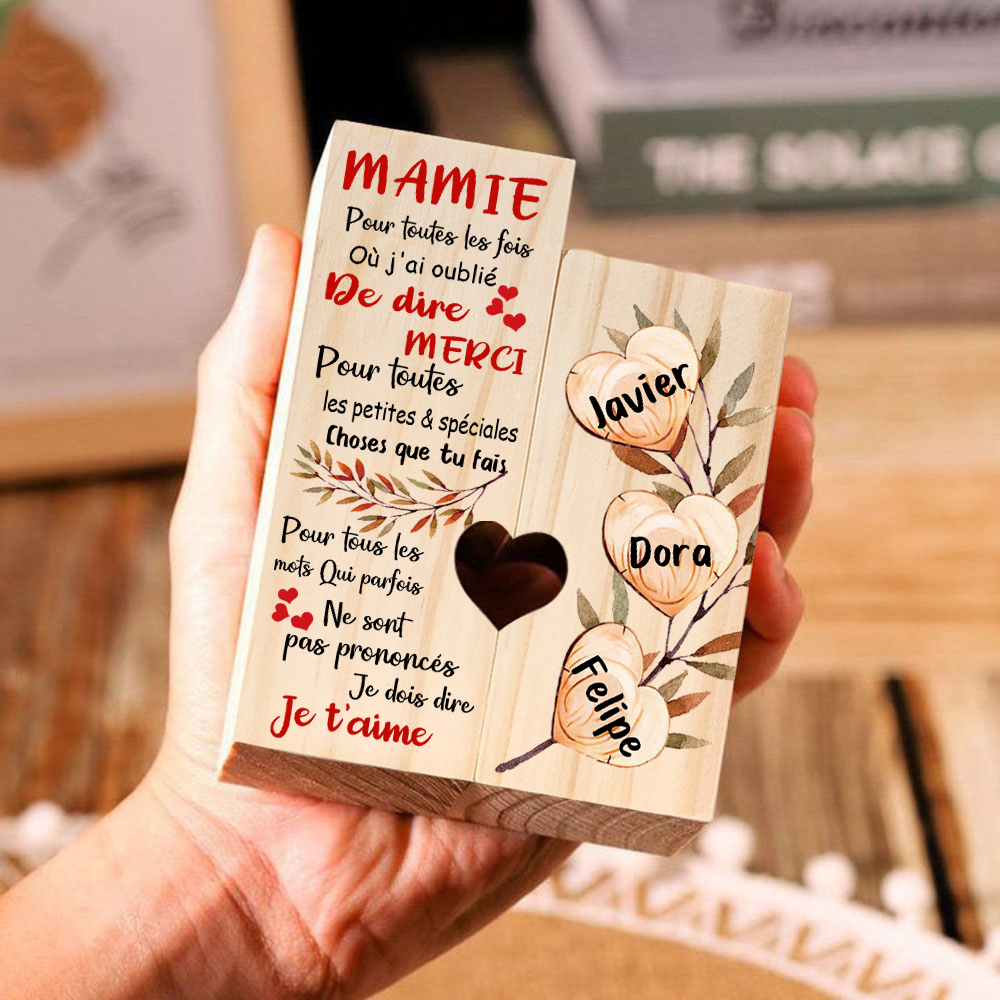 MAMIE
Pour toutes les fois
Où j'ai oublié
De dire
MERCI
Pour toutes
les petites & spéciales
Choses que tu fais
Pour tous les
mots Qui parfois
Ne sont
pas prononcés
Je dois dire
Je t'aime
Javier
Dora
Felipe
THE SOLACE